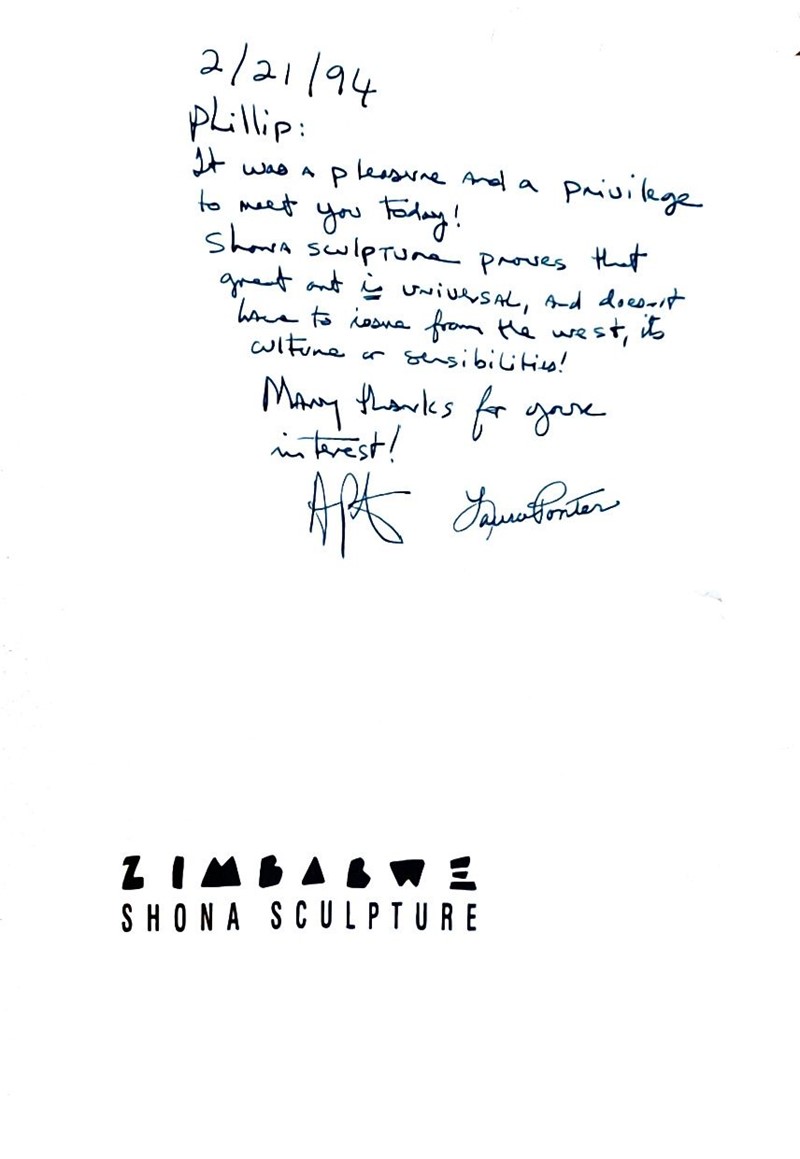 2/21/94
Phillip:
It was a pleasure and a privilege
to meet you today!
Shona sculpture proves that
great art is universal, and doesn't
have to issue from the west, its
culture or sensibilities!
Many thanks for your
interest!
Laura Ponter
ZIMBABWE
SHONA SCULPTURE